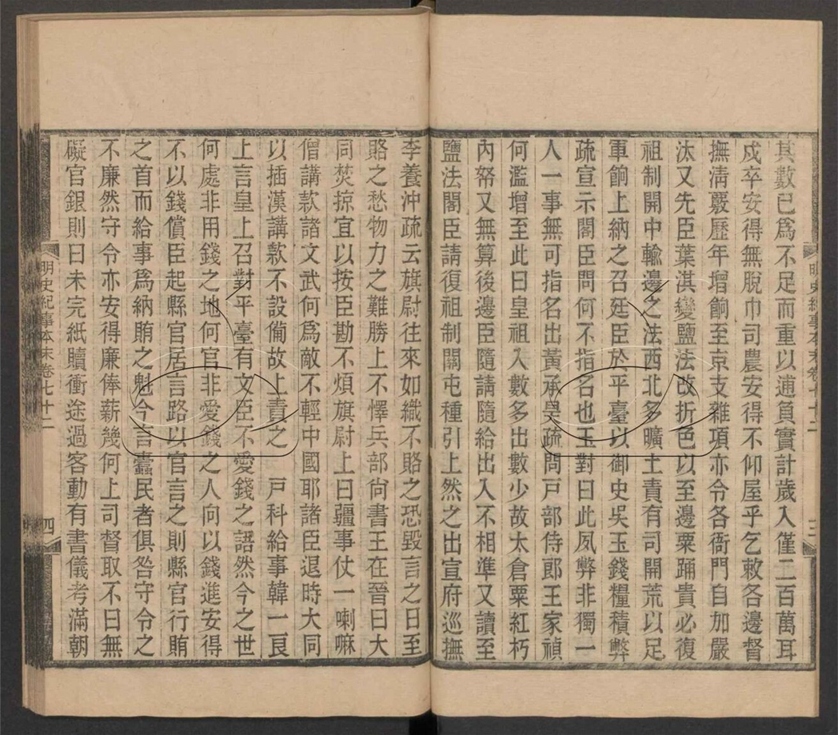 其數已爲不足而重以逋負實計歲入僅二百萬耳
戍卒安得無脫巾司農安得不仰屋乎乞敕各邊督
撫清覈歷年增餉至京支雜項亦令各衙門自加嚴
汰又先臣葉淇變鹽法改折色以至邊粟踊貴必復
祖制開中輸邊之法西北多曠土責有司開荒以足
軍餉上納之召廷臣於平臺以御史吳玉錢糧積弊
疏宣示閣臣問何不指名也玉對曰此夙弊非獨一
人一事無可指名出黃承昊疏問戸部侍郎王家禎
何濫增至此曰皇祖入數多出數少故太倉粟紅朽
內帑又無算後邊臣隨請隨給出入不相準又讀至
鹽法閣臣請復祖制關屯種引上然之出宣府巡撫
李養沖疏云旗尉往來如織不賂之恐毀言之日至
賂之愁物力之難勝上不懌兵部尙書王在晉曰大
同焚掠宜以按臣勘不煩旗尉上曰疆事仗一喇嘛
僧講款諸文武何爲敵不輕中國耶諸臣退時大同
以插漢講款不設備故上責之 戸科給事韓一良
上言皇上召對平臺有文臣不愛錢之語然今之世
何處非用錢之地何官非愛錢之人向以錢進安得
不以錢償臣起縣官居言路以官言之則縣官行賄
之首而給事爲納賄之魁今言蠹民者俱咎守令之
不廉然守令亦安得廉俸薪幾何上司督取不曰無
礙官銀則曰未完紙贖衝途過客動有書儀考滿朝
明史紀事本末卷七十二 三
明史紀事本末卷七十二 四